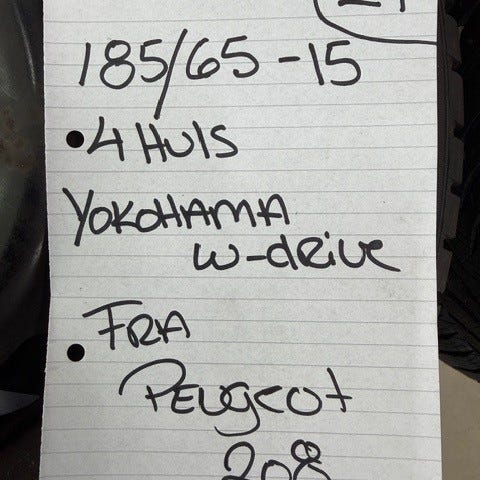 185/65-15
4 HULS
YOKOHAMA
W-drive
FRA
PEUGEOT
208